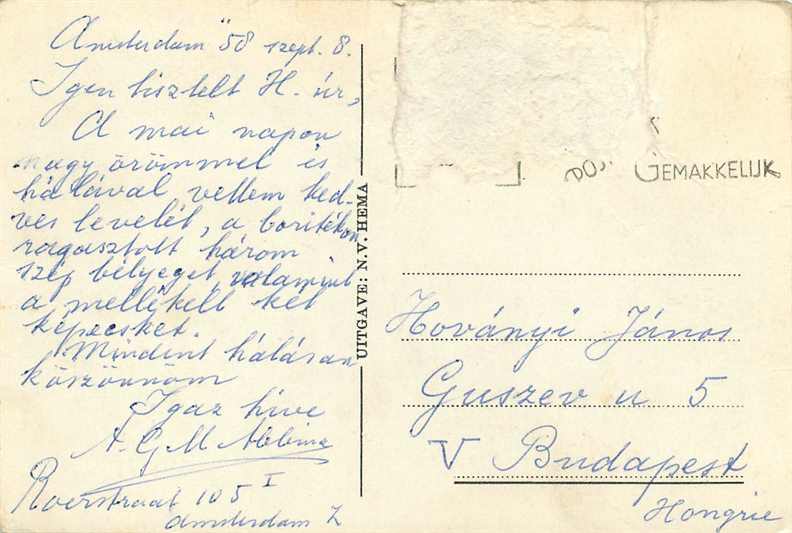 Amsterdam "58 szept. 8.
Igen tisztelt H. úr,
A mai napon
nagy örömmel és
hálával vettem ked-
ves levelét, a boritékon
ragasztott három
szép bélyeget valamint
a mellékelt két
képecsket.
Mindent hálásan
köszönnöm
Igaz híve
A. G. M.
Roerstraat 105 I
Amsterdam Z
UITGAVE: N.V. HEMA
GEMAKKELIJK
Hoványi János
Guszev u 5
V Budapest
Hongrie